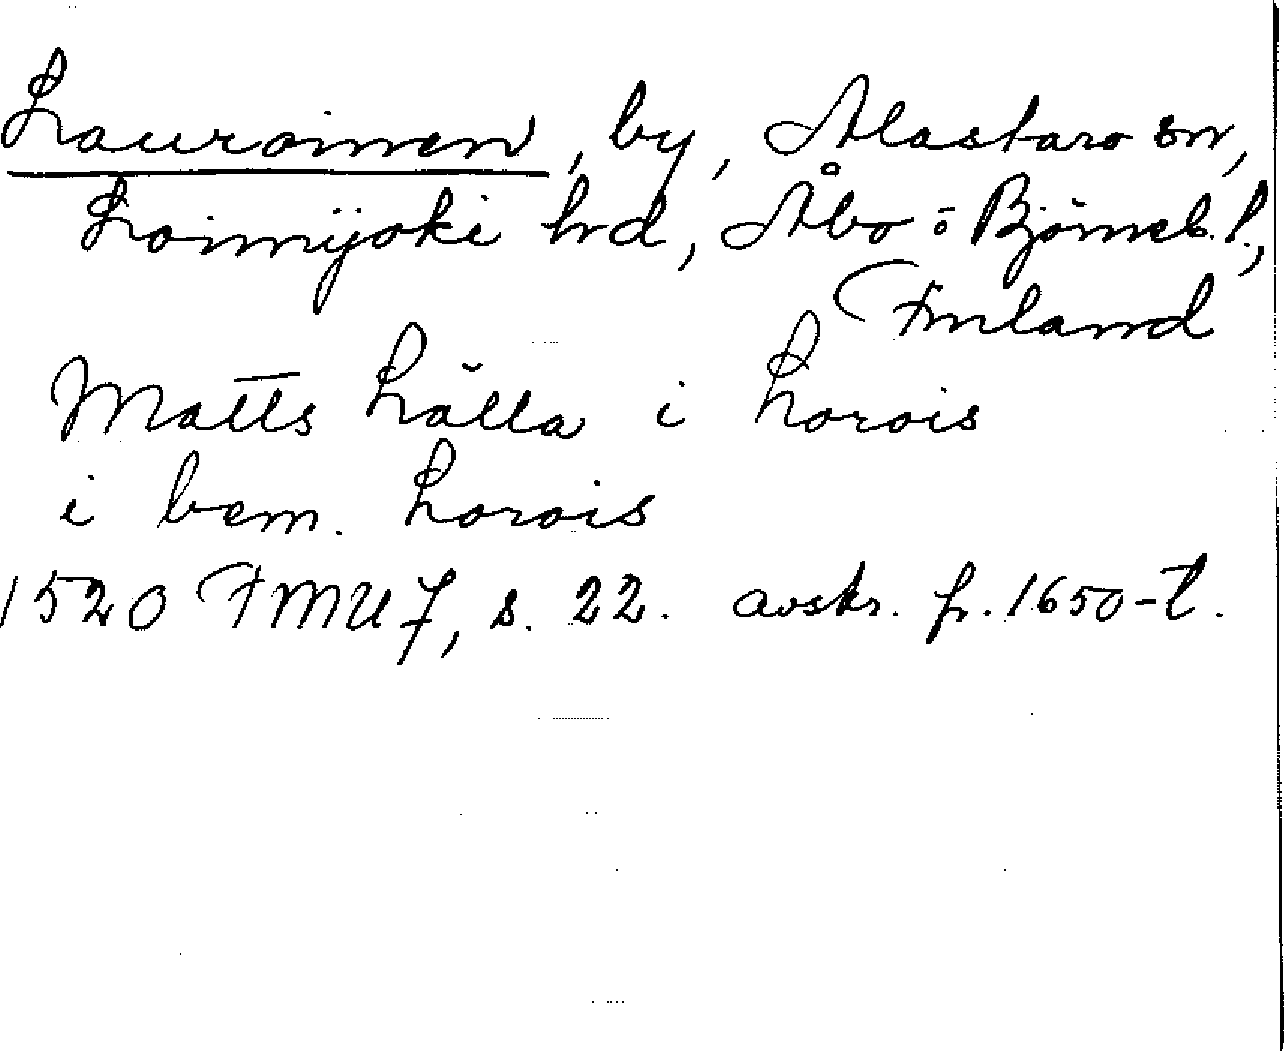 Lauroinen, by, Alastaro sn,
Loimijoki hrd, Åbo o Björneb. l.,
Finland
Matts Lälla i Lorois
i bem. Lorois
1520 FMU 7, s. 22. avskr. fr. 1650-t.